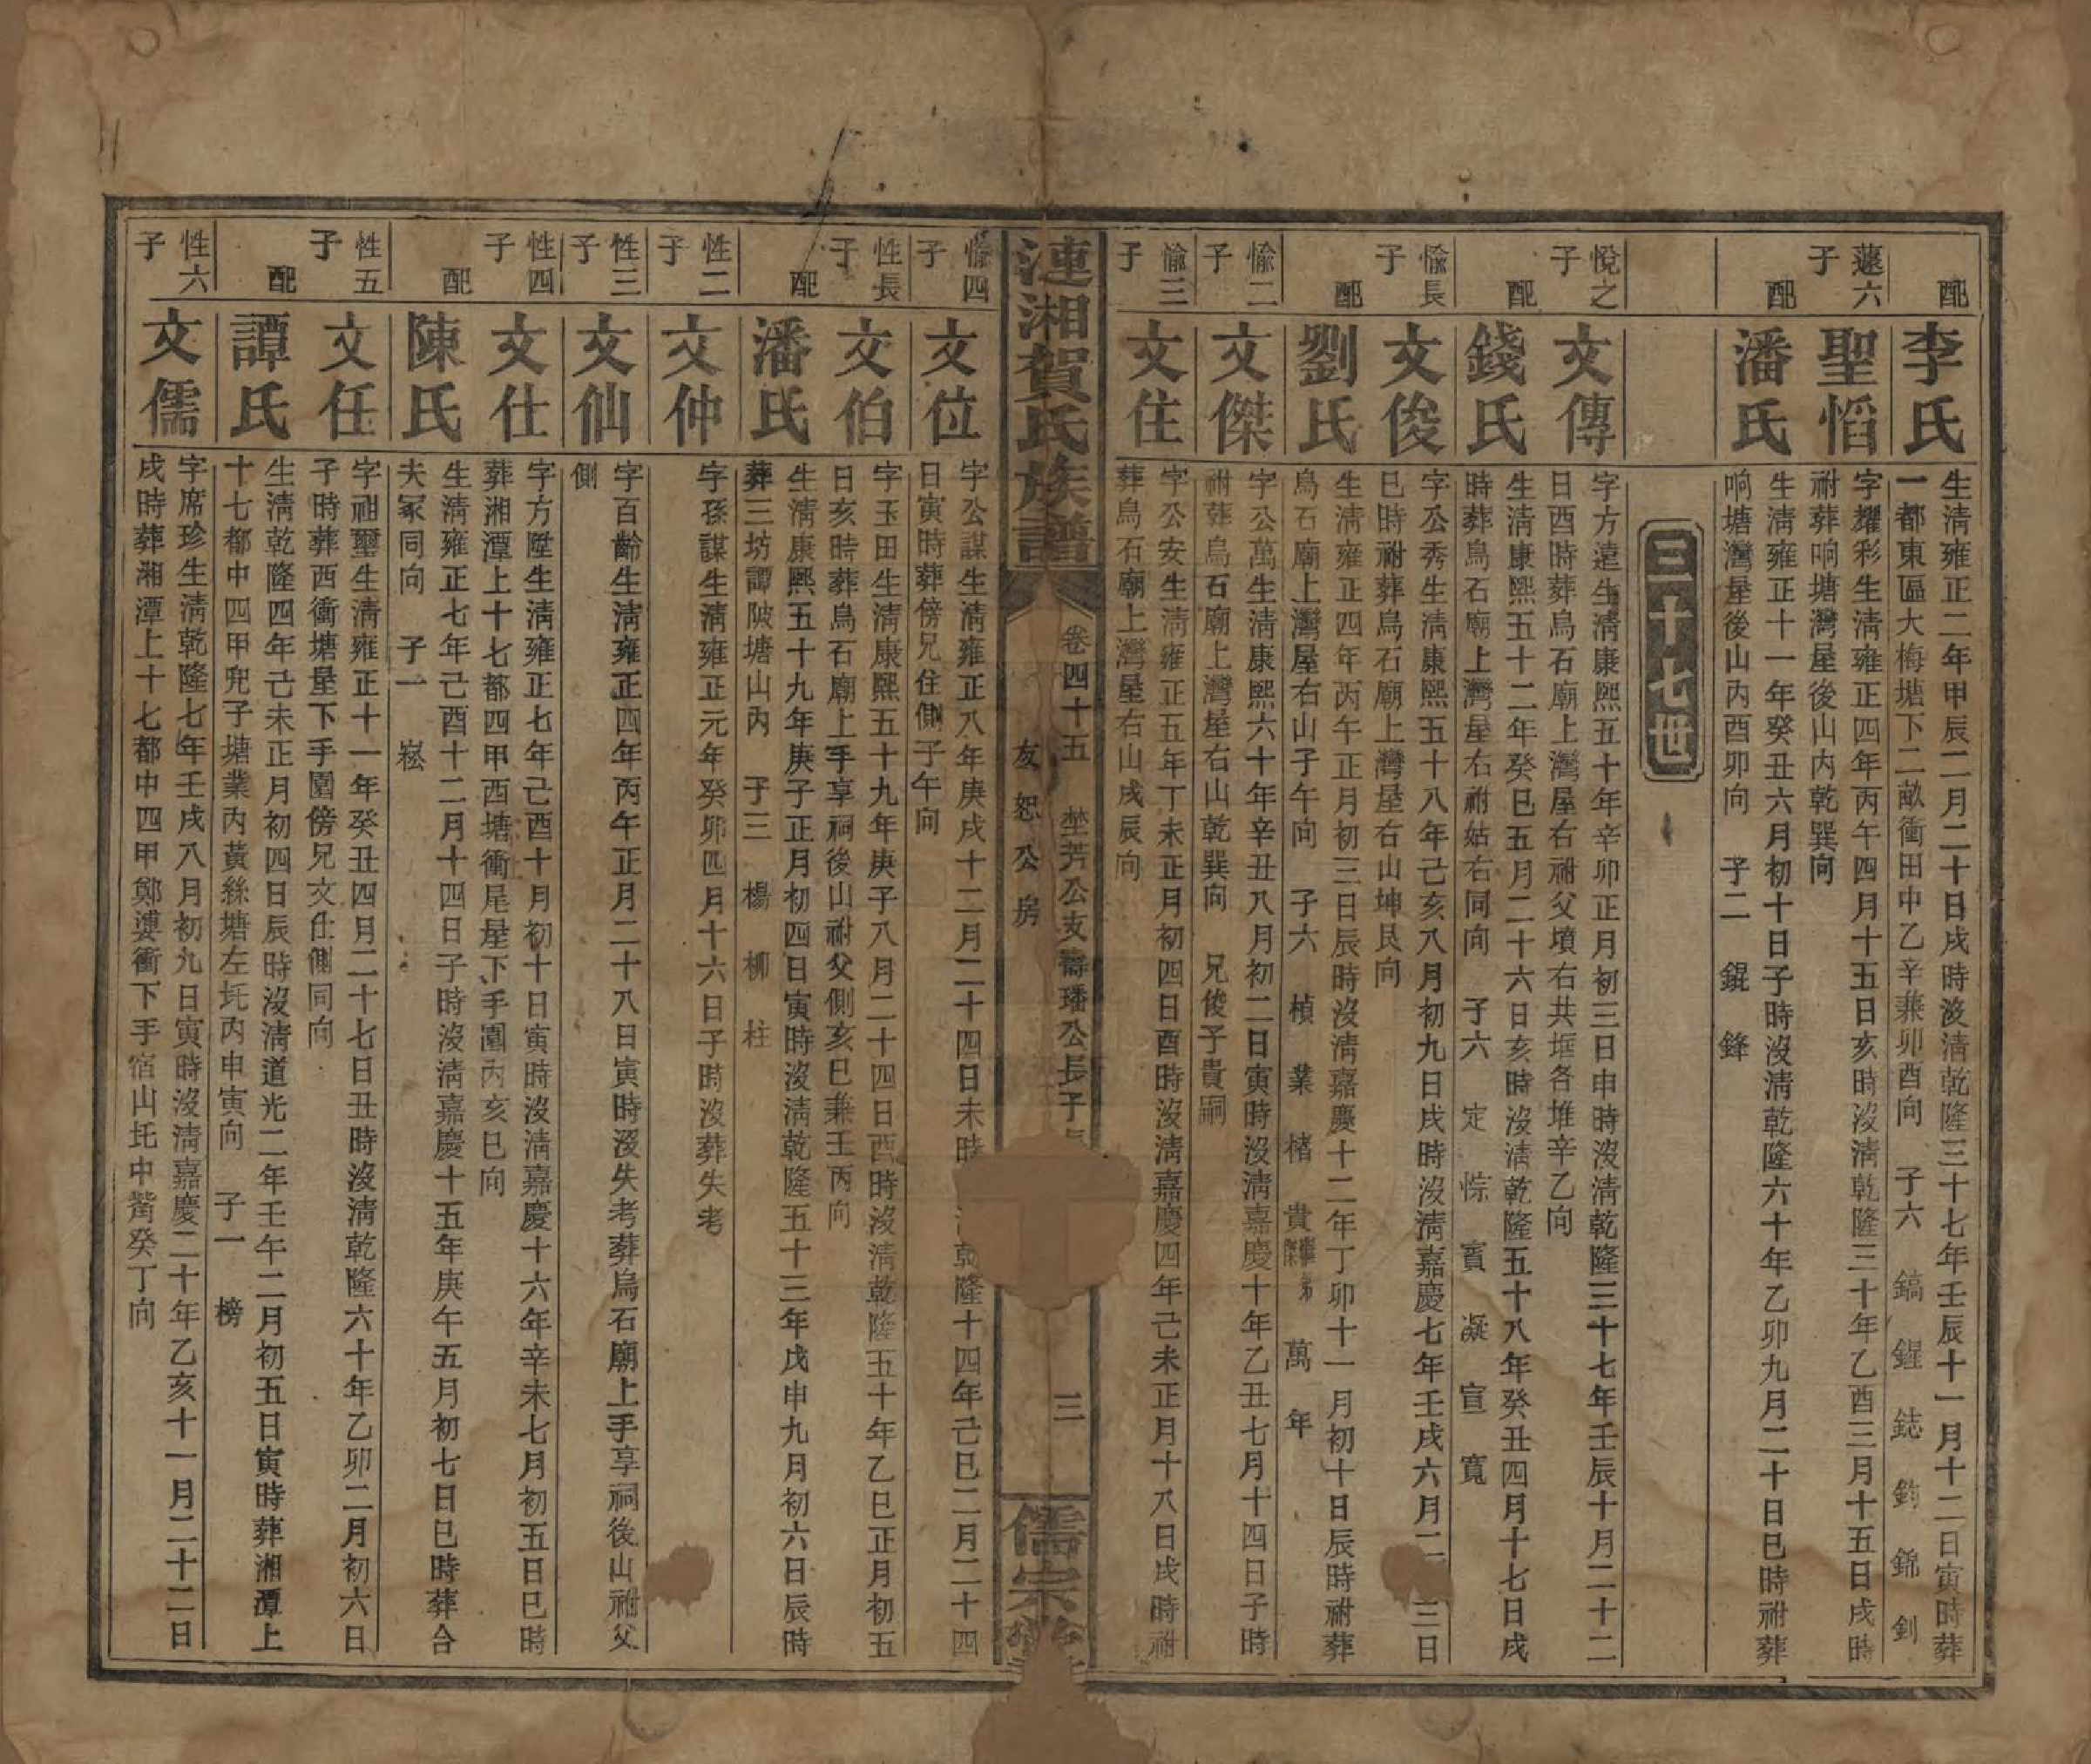 配
李氏
生淸雍正二年甲辰二月二十日戌時沒淸乾隆三十七年壬辰十一月十二日寅時葬
一都東區大梅塘下二畝衝田中乙辛兼卯酉向 子六 鎬 鋥 鋕 鈞 錦 釗
蘧六子
聖慆
字耀彩生淸雍正四年丙午四月十五日亥時沒淸乾隆三十年乙酉三月十五日戌時
祔葬响塘灣屋後山內乾巽向
配
潘氏
生淸雍正十一年癸丑六月初十日子時沒淸乾隆六十年乙卯九月二十日巳時祔葬
响塘灣屋後山內酉卯向 子二 錕 鋒
三十七世
悅之子
文傳
字方遠生淸康熙五十年辛卯正月初三日申時沒淸乾隆三十七年壬辰十月二十二
日酉時葬烏石廟上灣屋右祔父墳右共堩各堆辛乙向
配
錢氏
生淸康熙五十二年癸巳五月二十六日亥時沒淸乾隆五十八年癸丑四月十七日戌
時葬烏石廟上灣屋右祔姑右同向 子六 定 悰 賓 凝 宣 寬
愉長子
文俊
字公秀生淸康熙五十八年己亥八月初九日戌時沒淸嘉慶七年壬戌六月二 三日
巳時祔葬烏石廟上灣屋右山坤艮向
配
劉氏
生淸雍正四年丙午正月初三日辰時沒淸嘉慶十二年丁卯十一月初十日辰時祔葬
烏石廟上灣屋右山子午向 子六 楨 業 楮 貴繼弟傑 萬 年
愉二子
文傑
字公萬生淸康熙六十年辛丑八月初二日寅時沒淸嘉慶十年乙丑七月十四日子時
祔葬烏石廟上灣屋右山乾巽向 兄俊子貴嗣
愉三子
文住
字公安生淸雍正五年丁未正月初四日酉時沒淸嘉慶四年己未正月十八日戌時祔
葬烏石廟上灣屋右山戌辰向
漣湘賀氏族譜
卷四十五 埜芳公支壽璠公長子
友恕公房
三
儒宗堂
愉四子
文位
字公謀生淸雍正八年庚戌十二月二十四日未時 乾隆十四年己巳二月二十四
日寅時葬傍兄住側子午向
性長子
文伯
字玉田生淸康熙五十九年庚子八月二十四日酉時沒淸乾隆五十年乙巳正月初五
日亥時葬烏石廟上手享祠後山祔父側亥巳兼壬丙向
配
潘氏
生淸康熙五十九年庚子正月初四日寅時沒淸乾隆五十三年戊申九月初六日辰時
葬三坊譚陂塘山內 子三 楊 柳 柱
性二子
文仲
字孫謀生淸雍正元年癸卯四月十六日子時沒葬失考
性三子
文仙
字百齡生淸雍正四年丙午正月二十八日寅時沒失考葬烏石廟上手享祠後山祔父
側
性四子
文仕
字方陞生淸雍正七年己酉十月初十日寅時沒淸嘉慶十六年辛未七月初五日巳時
葬湘潭上十七都四甲西塘衝尾屋下手園內亥巳向
配
陳氏
生淸雍正七年己酉十二月十四日子時沒淸嘉慶十五年庚午五月初七日巳時葬合
夫冢同向 子一 崧
性五子
文任
字祖璽生淸雍正十一年癸丑四月二十七日丑時沒淸乾隆六十年乙卯二月初六日
子時葬西衝塘屋下手園傍兄文仕側同向
配
譚氏
生淸乾隆四年己未正月初四日辰時沒淸道光二年壬午二月初五日寅時葬湘潭上
十七都中四甲兜子塘業內黃絲塘左坉內申寅向 子一 榜
性六子
文儒
字席珍生淸乾隆七年壬戌八月初九日寅時沒淸嘉慶二十年乙亥十一月二十二日
戌時葬湘潭上十七都中四甲鄭婆衝下手宿山坉中嘴癸丁向